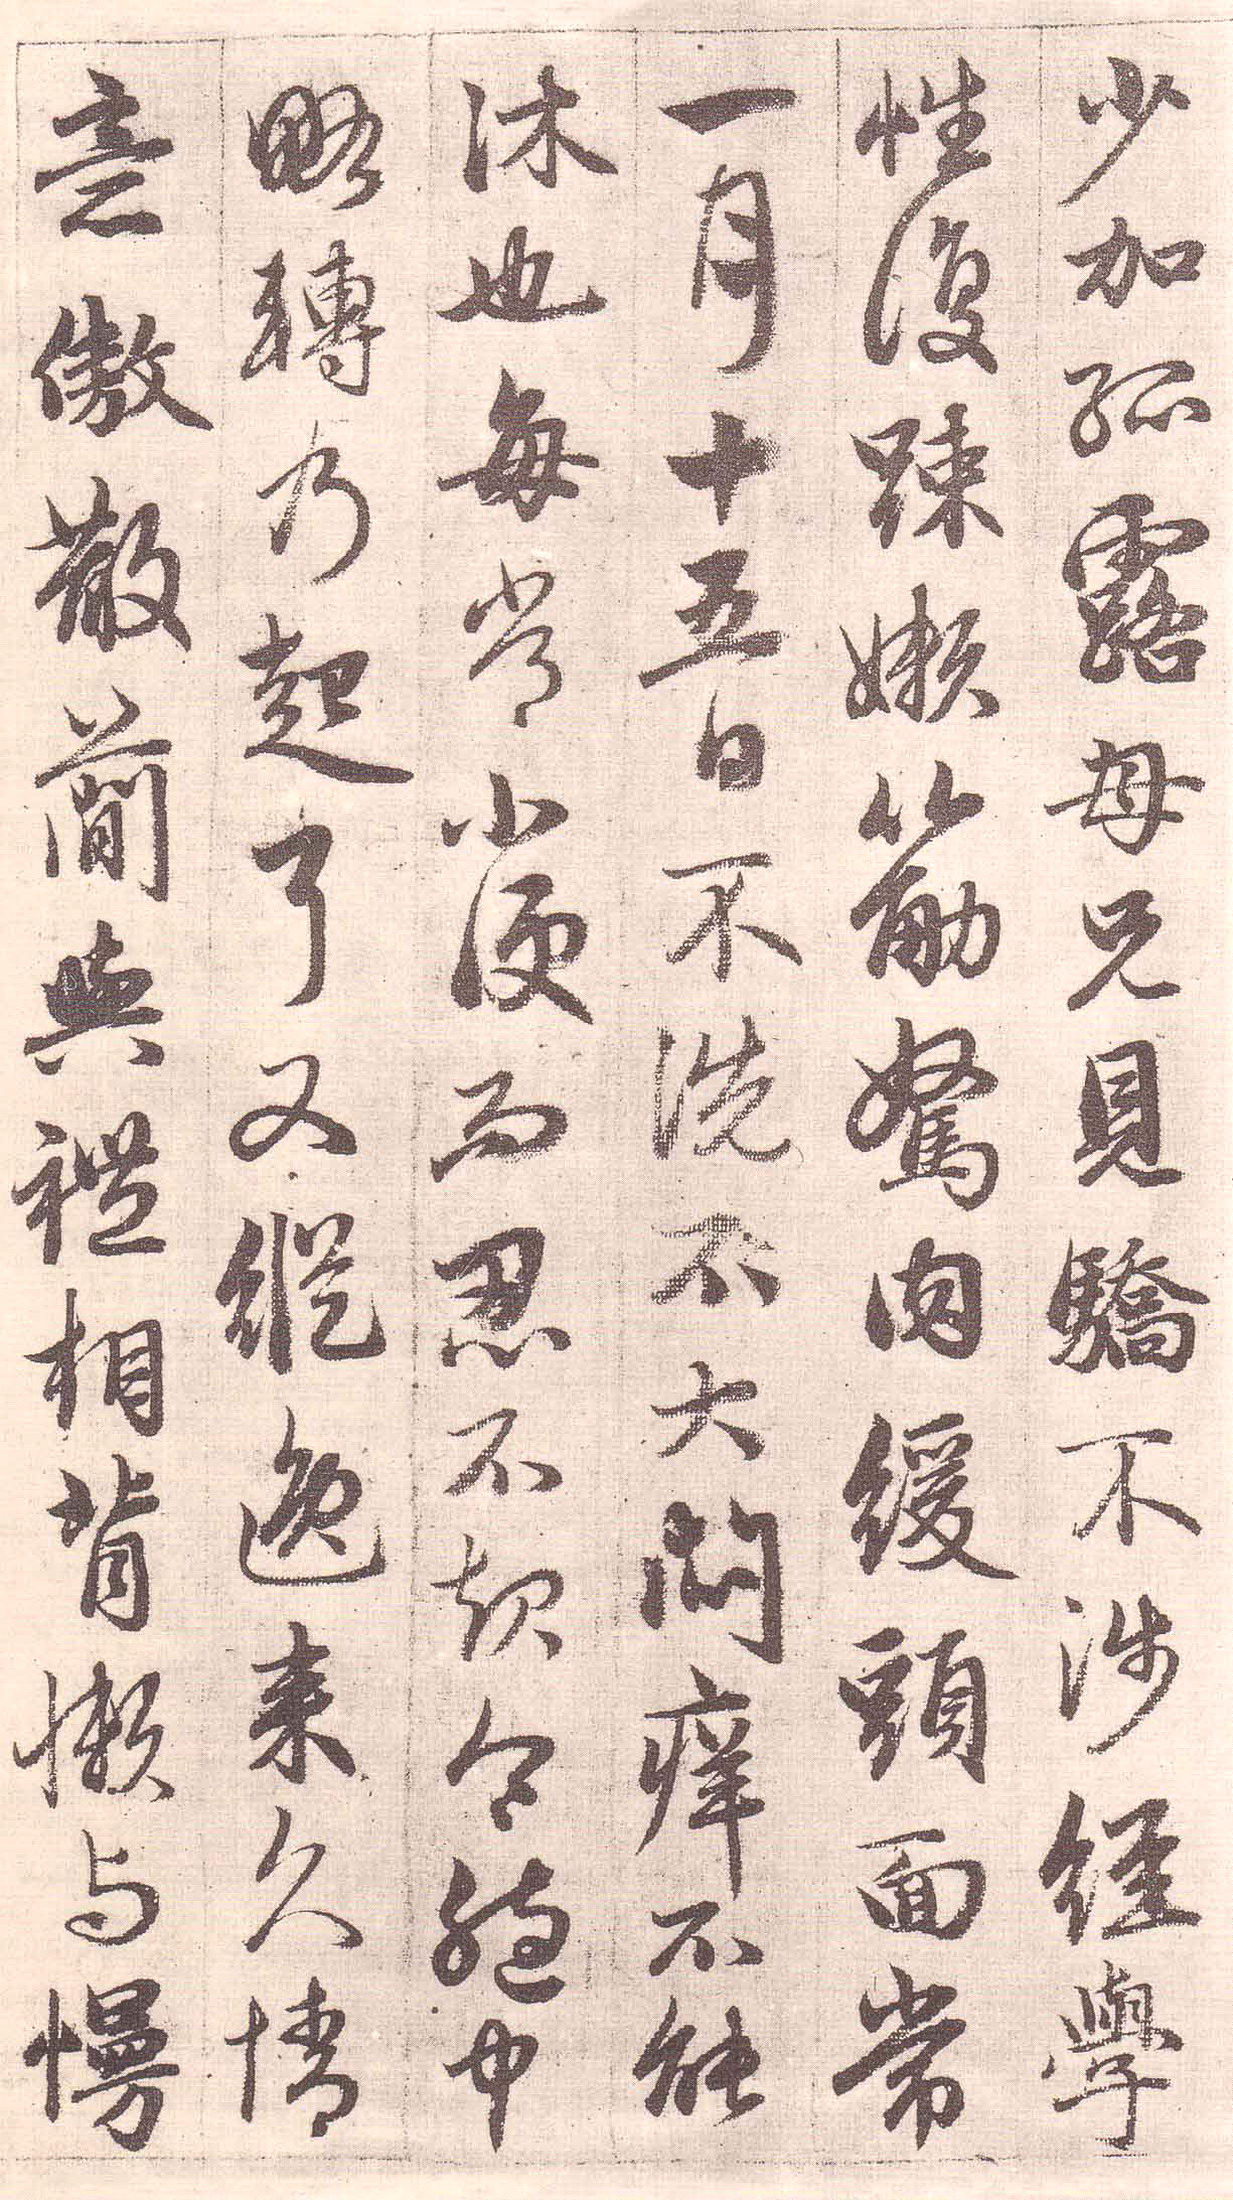 少加孤露母兄見驕不涉経學
性復踈嬾筋駑肉緩頭面常
一月十五日不洗不大悶癢不能
沐也每當小便而忍不起令胞中
略轉乃起耳又縱逸来久情
意傲散簡與禮相背懶与慢